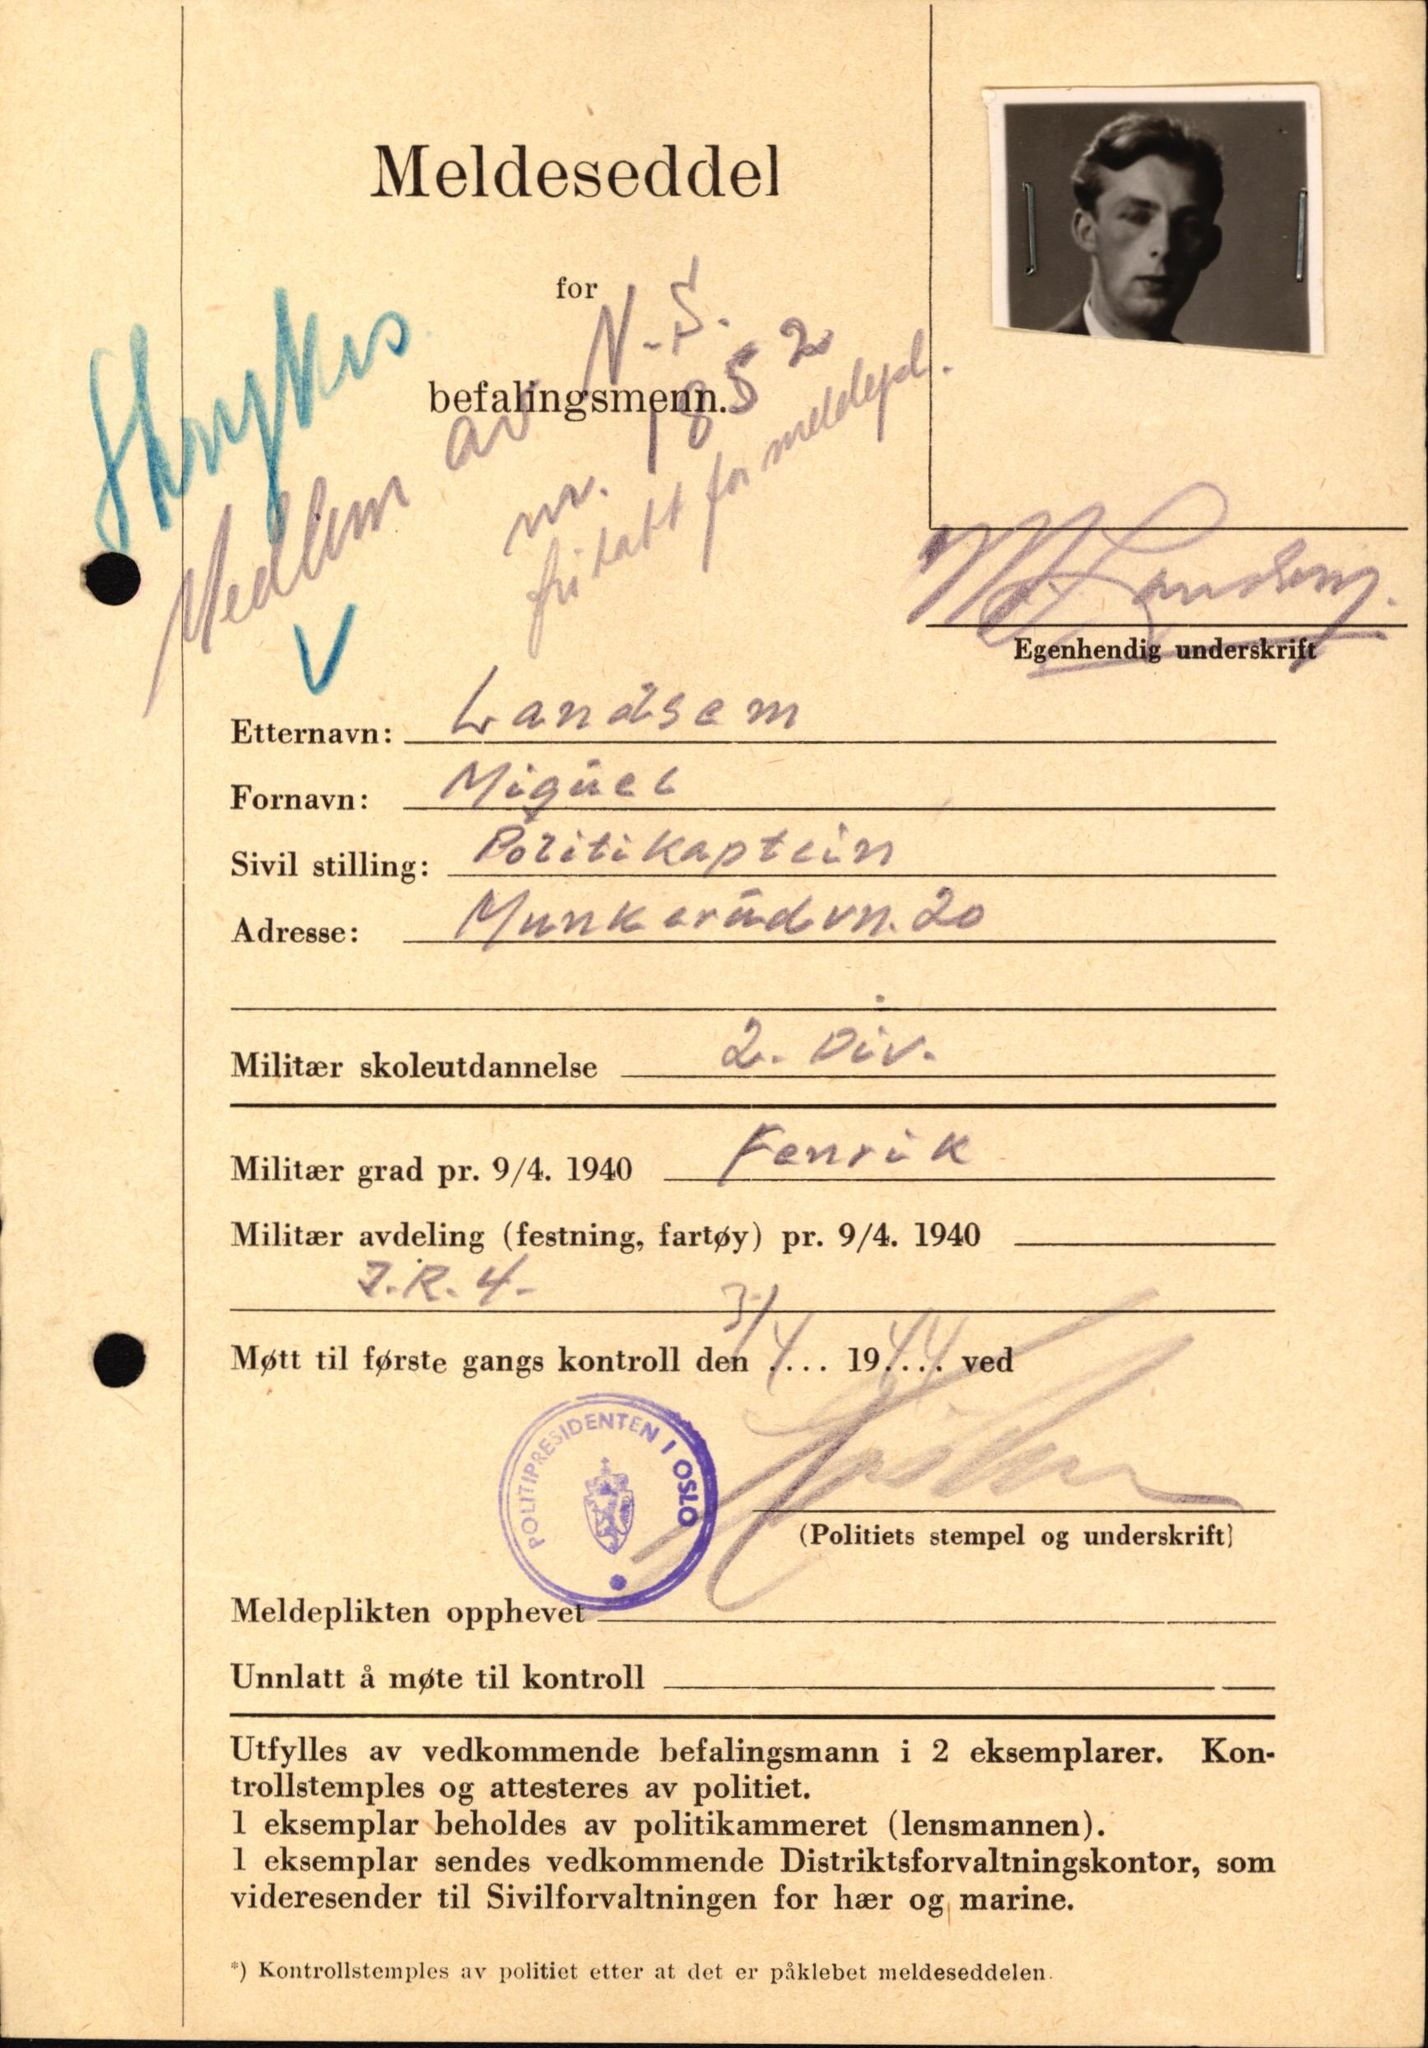 Meldeseddel
for
befalingsmenn.
Strykes
Medlem av N.S.
nr. 1852
fritatt for meldepl.
M. Landsem.
Egenhendig underskrift
Etternavn: Landsem
Fornavn: Miguel
Sivil stilling: Politikaptein
Adresse: Munkerudvn. 20
Militær skoleutdannelse 2. Div.
Militær grad pr. 9/4. 1940 Fenrik
Militær avdeling (festning, fartøy) pr. 9/4. 1940
I.R. 4.
Møtt til første gangs kontroll den 3/4 .... 1944.... ved
POLITIPRESIDENTEN I OSLO
(Politiets stempel og underskrift)
Meldeplikten opphevet
Unnlatt å møte til kontroll
Utfylles av vedkommende befalingsmann i 2 eksemplarer. Kon-
trollstemples og attesteres av politiet.
1 eksemplar beholdes av politikammeret (lensmannen).
1 eksemplar sendes vedkommende Distriktsforvaltningskontor, som
videresender til Sivilforvaltningen for hær og marine.
*) Kontrollstemples av politiet etter at det er påklebet meldeseddelen.